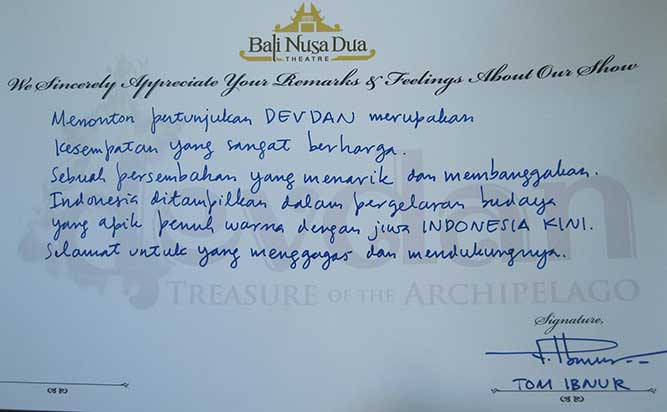 Bali Nusa Dua
THEATRE
We Sincerely Appreciate Your Remarks & Feelings About Our Show
Menonton pertunjukan DEVDAN merupakan
kesempatan yang sangat berharga.
Sebuah persembahan yang menarik dan membanggakan.
Indonesia ditampilkan dalam pergelaran budaya
yang apik penuh warna dengan jiwa INDONESIA KINI.
Selamat untuk yang menggagas dan mendukungnya.
devdan
TREASURE OF THE ARCHIPELAGO
Signature,
TOM IBNUR